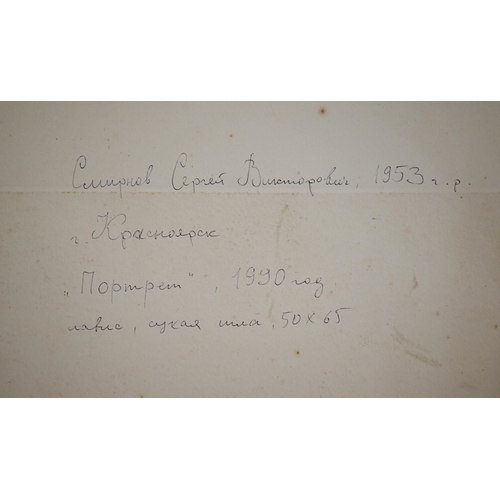 Смирнов Сергей Викторович, 1953 г.р.
г. Красноярск
„Портрет", 1990 год
лавис, сухая игла, 50х65